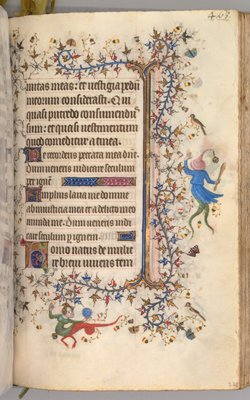 mitas meas: et vestigia pedū
meorum considerasti. Qui
quasi putredo consumendus
sum: et quasi vestimentum
quod comeditur a tinea.
Ne recorderis peccata mea dñe.
Dum veneris iudicare seculum
per ignē.
Amplius lava me domine
ab iniusticia mea et a delicto meo
munda me. Dum veneris iudi
care seculum p ignem.
Homo natus de mulie
re brevi vivens tem